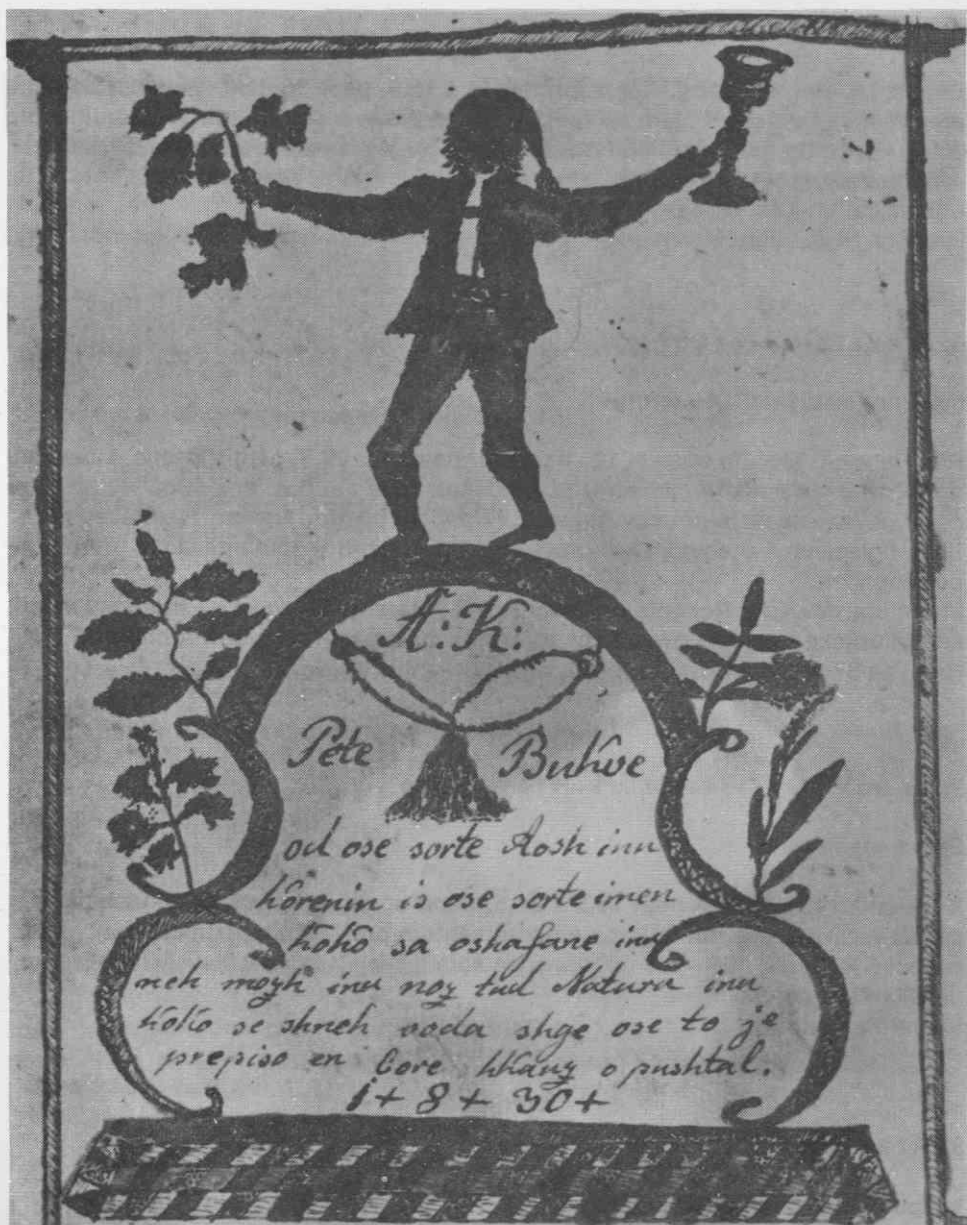 A: K:
Pete Bukve
od ose sorte Rosh inu
körenin is ose sorte imen
kokö sa oshafane inu
neh mozh inu noz tud Natura inu
kokö se shneh ooda shge ose to je
prepiso en Core kkauz o pushtal.
1 + 8 + 30 +